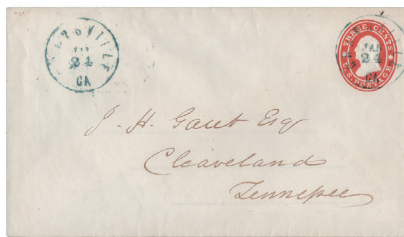 JAN
24
GA
THREE CENTS
U.S. POSTAGE
JAN
24
GA
J. H. Gaut Esq
Cleaveland
Tennessee